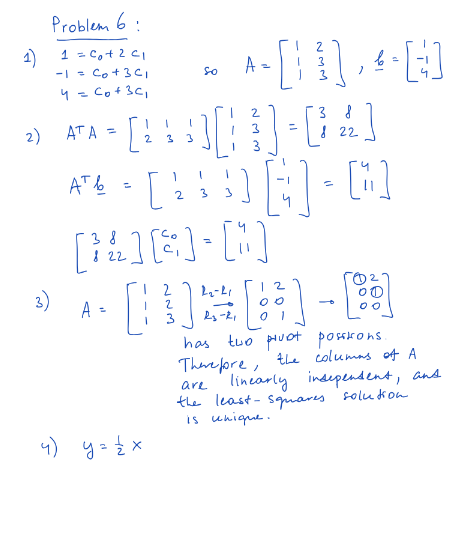 Problem 6 :
1) 1 = c₀ + 2 c₁
-1 = c₀ + 3 c₁
4 = c₀ + 3 c₁
so A = [ 1 2 ; 1 3 ; 1 3 ] , b = [ 1 ; -1 ; 4 ]
2) AᵀA = [ 1 1 1 ; 2 3 3 ] [ 1 2 ; 1 3 ; 1 3 ] = [ 3 8 ; 8 22 ]
Aᵀb = [ 1 1 1 ; 2 3 3 ] [ 1 ; -1 ; 4 ] = [ 4 ; 11 ]
[ 3 8 ; 8 22 ] [ c₀ ; c₁ ] = [ 4 ; 11 ]
3) A = [ 1 2 ; 1 2 ; 1 3 ] R₂-R₁ → R₃-R₁ [ 1 2 ; 0 0 ; 0 1 ] → [ 1 2 ; 0 1 ; 0 0 ]
has two pivot positions.
Therefore, the columns of A
are linearly independent, and
the least-squares solution
is unique.
4) y = 1/2 x